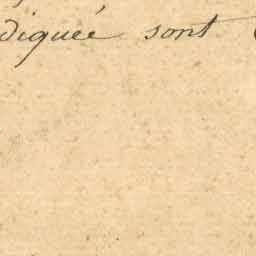 diquée sont